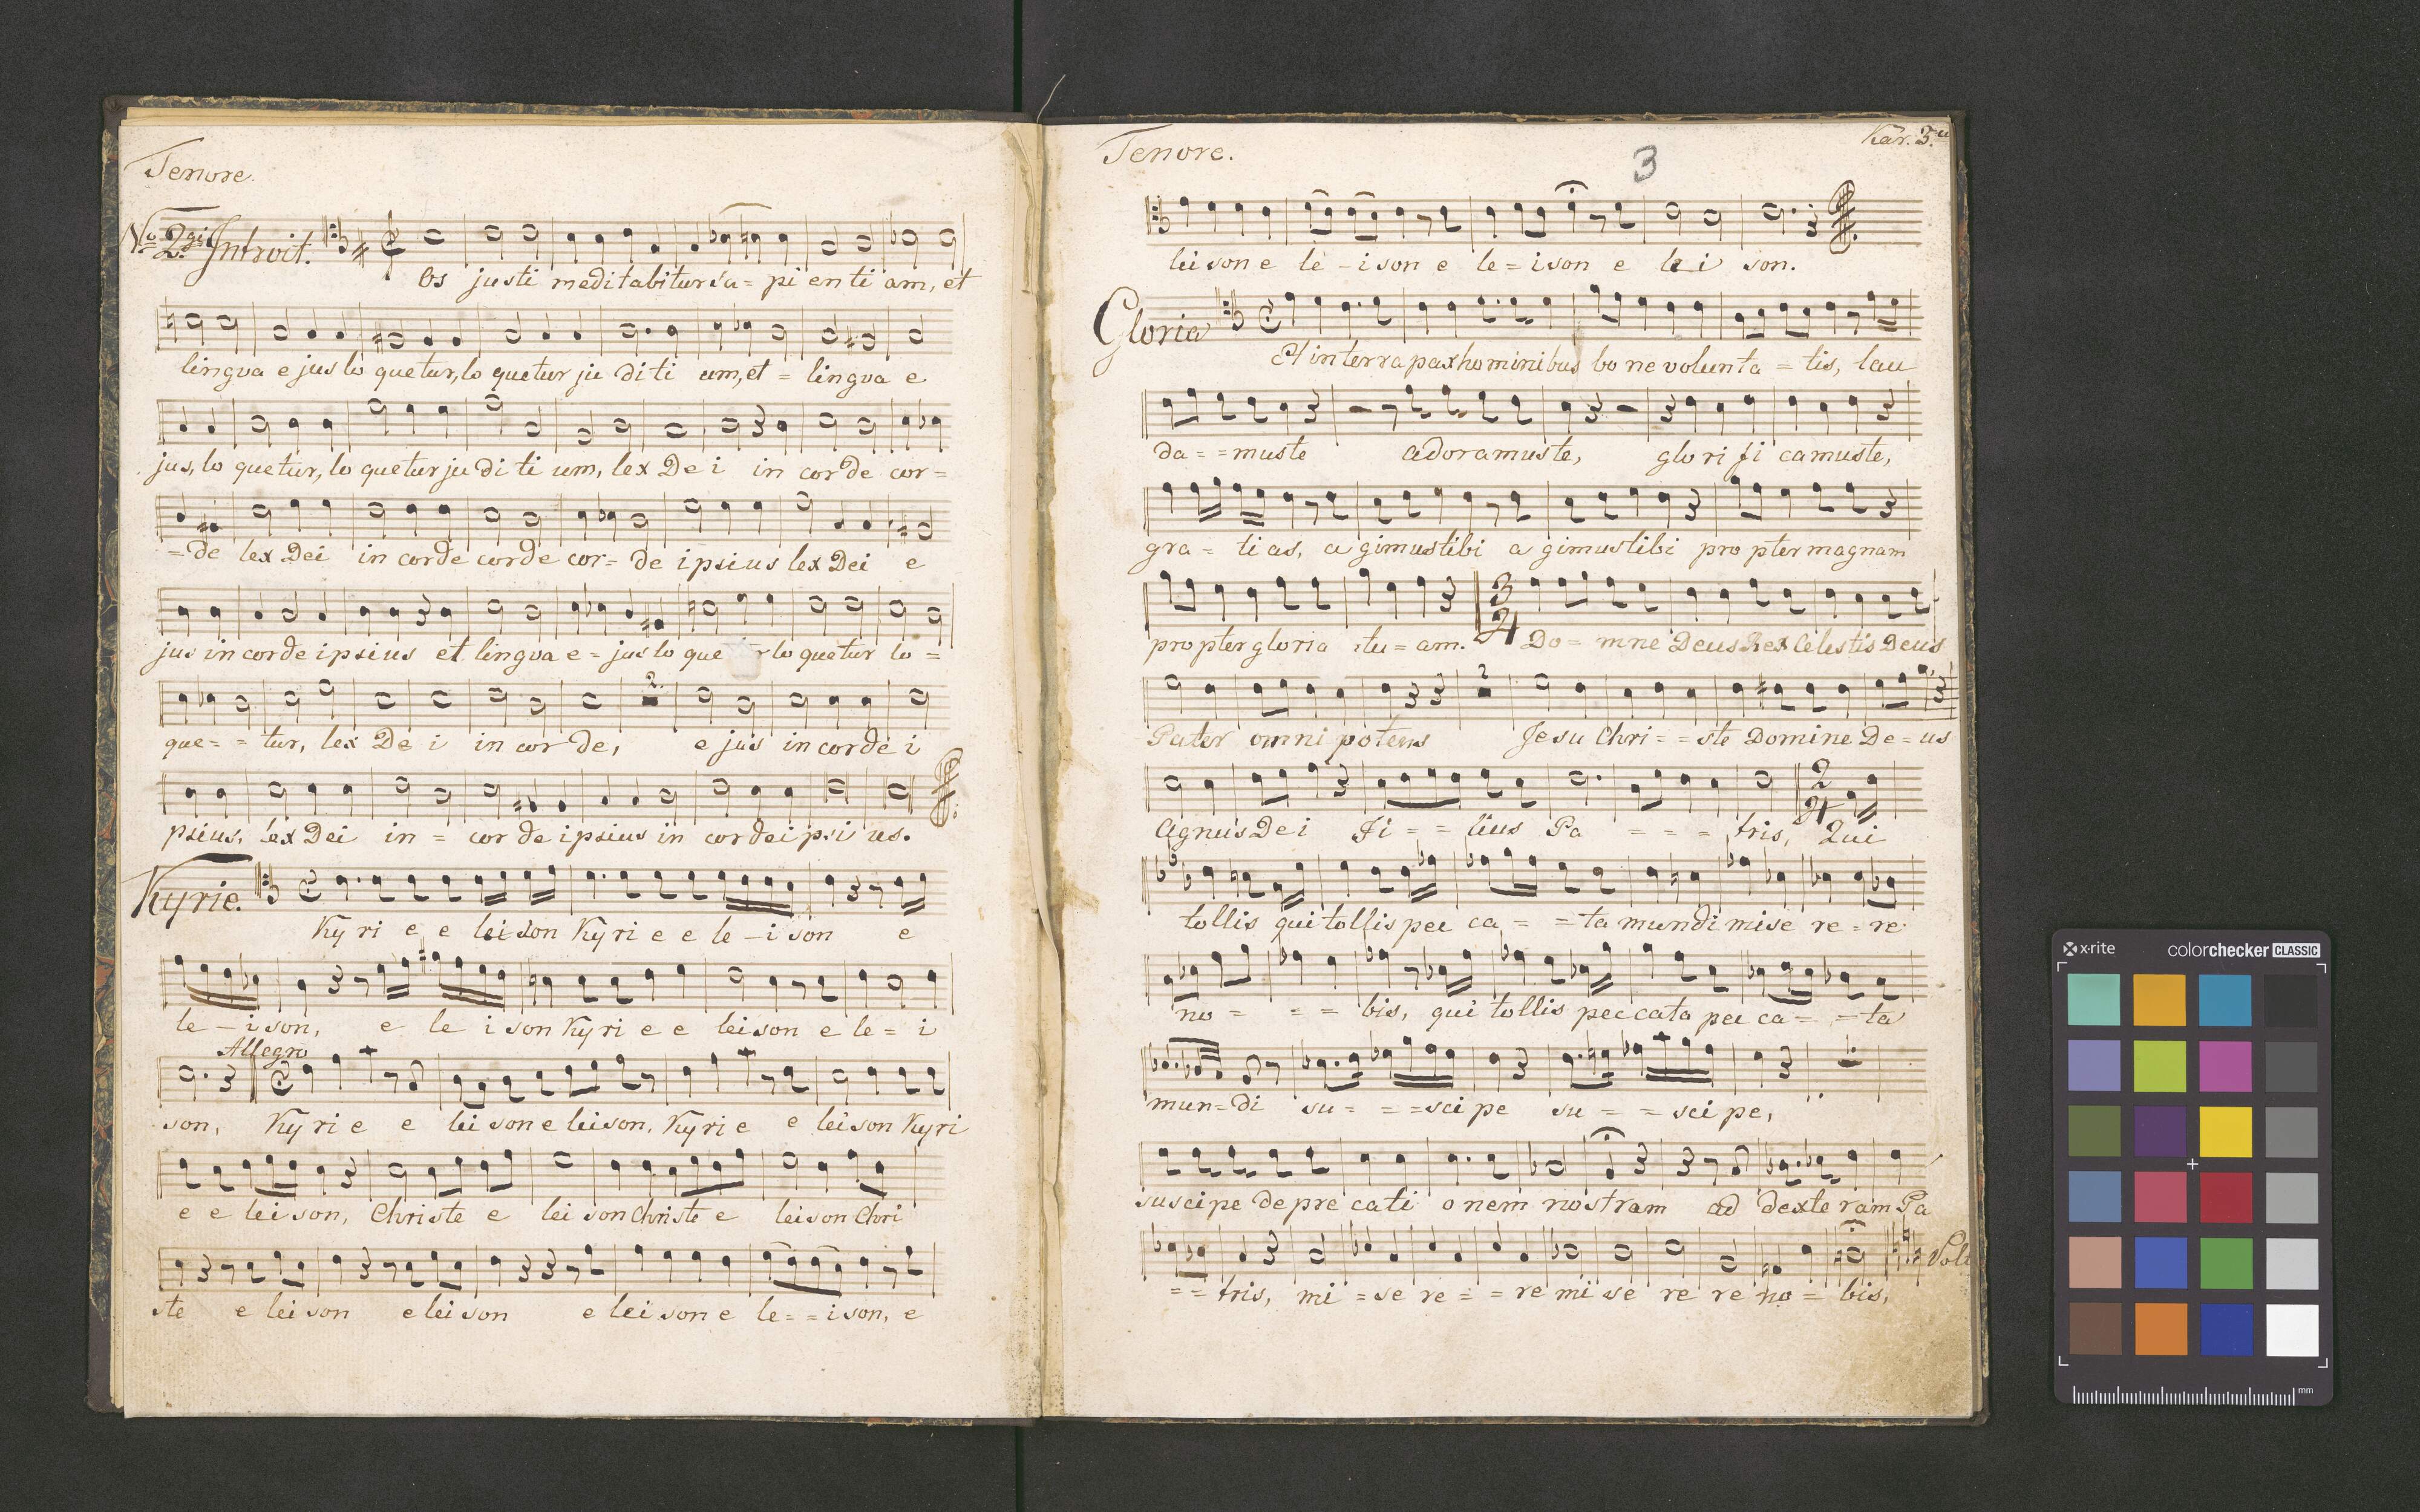 Tenore.
No 2gi Introit.
Os justi meditabitur sa = pi en ti am, et
lingva e jus lo quetur, lo quetur ju di ti um, et = lingva e
jus, lo quetur, lo quetur ju di ti um, lex De i in cor de cor =
= de lex Dei in corde corde cor = de ipsius lex Dei e
jus in corde ipsius et lingva e = jus lo que r lo quetur lo =
2.
que = = tur, lex De i in cor de, e jus in corde i
psius, lex Dei in = cor de ipsius in cor dei psi us.
Kyrie.
Ky ri e e leison Ky ri e e le - i son e
le - i son, e le i son Ky ri e e leison e le = i
Allegro
son, Ky ri e e lei son e leison, Ky ri e e leison Kyri
e e lei son, Christe e lei son Christe e leison Chri
ste e lei son e lei son e lei son e le = = i son, e
Tenore.
Kar. 3.
3
lei son e le - i son e le = ison e le i son.
Gloria
Et in terra pax hominibus bo ne volunta = tis, lau
da = = muste adoramuste, glo ri fi camuste,
gra = ti as, a gimus tibi a gimus tibi pro pter magnam
3
4
pro pter gloria tu = am. Do = mne Deus Rex Celestis Deus
2
Pater omni potens Jesu Chri = = ste Domine De = us
2
4
Agnus De i Fi = = lius Pa = = = tris, Qui
tollis qui tollis pec ca = = ta mundi mise re = re
no = = = bis, qui tollis peccata pec ca = = ta
mun = di su = = = sci pe su = = sci pe,
suscipe depre cati o nem nostram ad dexte ram Pa
Volt
= = tris, mi = se re = = re mi se re re no = bis,
x·rite colorchecker CLASSIC
mm